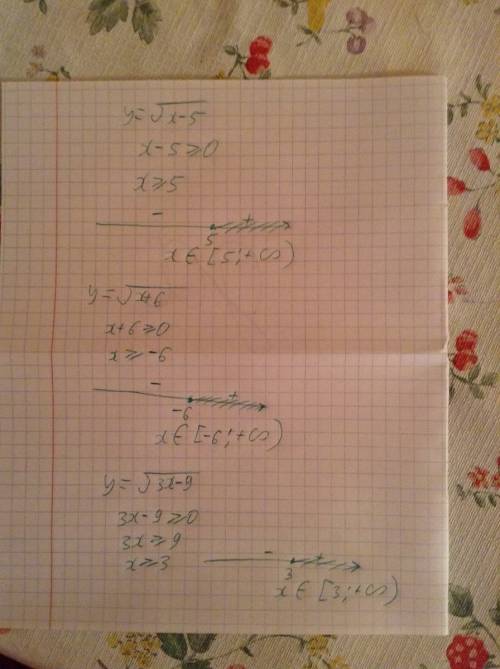 y=√x-5
x-5≥0
x≥5
- +
5
x∈[5;+∞)
y=√x+6
x+6≥0
x≥-6
- +
-6
x∈[-6;+∞)
y=√3x-9
3x-9≥0
3x≥9
x≥3
- +
3
x∈[3;+∞)